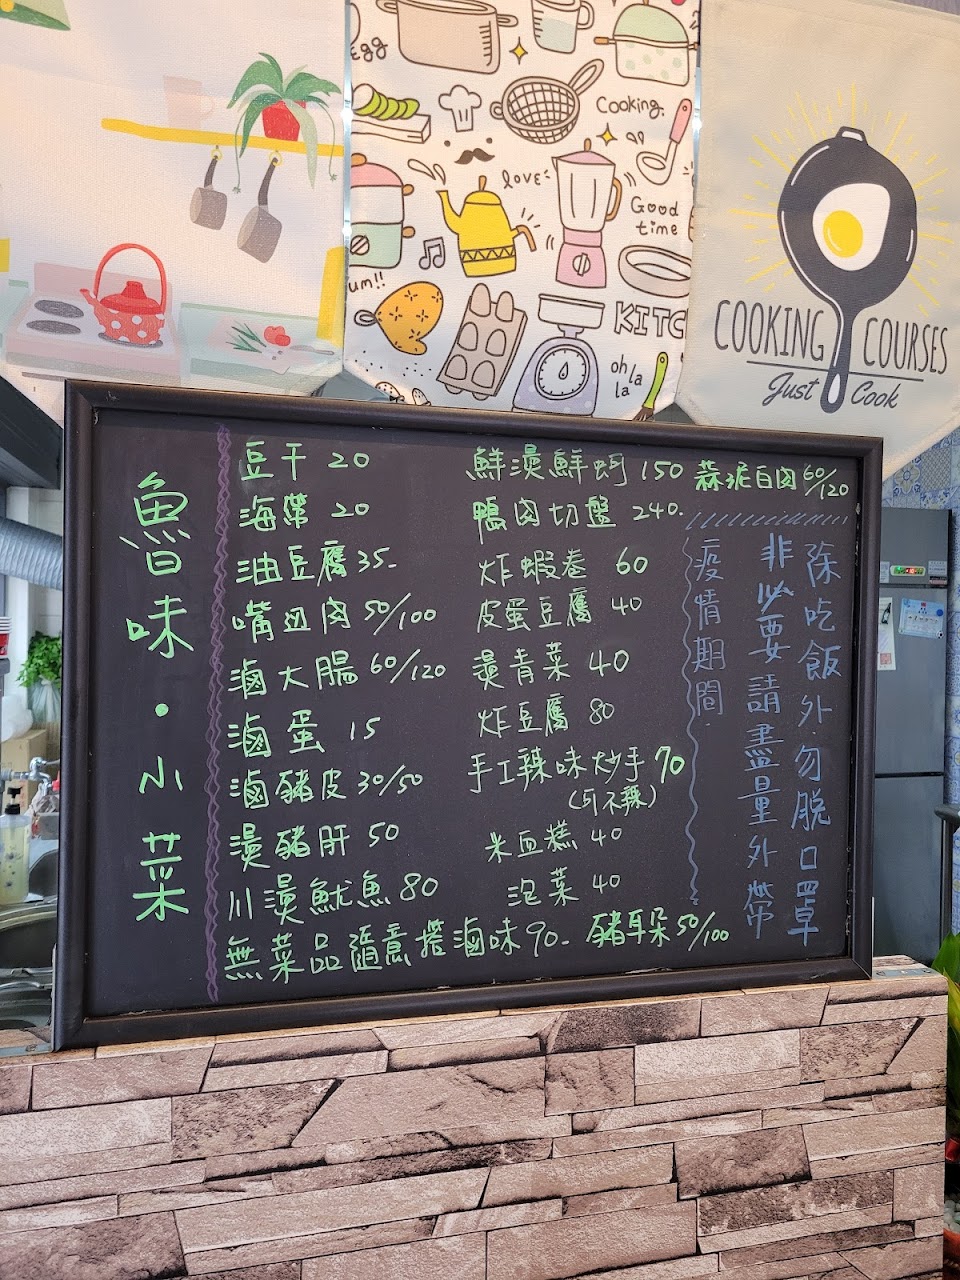 egg
Cooking.
love
Good
time
um!!
KITC
oh la
la
COOKING COURSES
Just Cook
魯味·小菜
豆干 20
海帶 20
油豆腐 35.
嘴边肉 50/100
滷大腸 60/120
滷蛋 15
滷豬皮 30/50
燙豬肝 50
川燙魷魚 80
無菜品隨意搭滷味90. 豬耳朵 50/100
鮮燙鮮蚵 150
鴨肉切盤 240.
炸蝦卷 60
皮蛋豆腐 40
燙青菜 40
炸豆腐 80
手工辣味炒手 70
(可不辣)
米血糕 40
泡菜 40
蒜泥白肉 60/120
疫情期間.
除吃飯外.勿脫口罩
非必要請盡量外帶